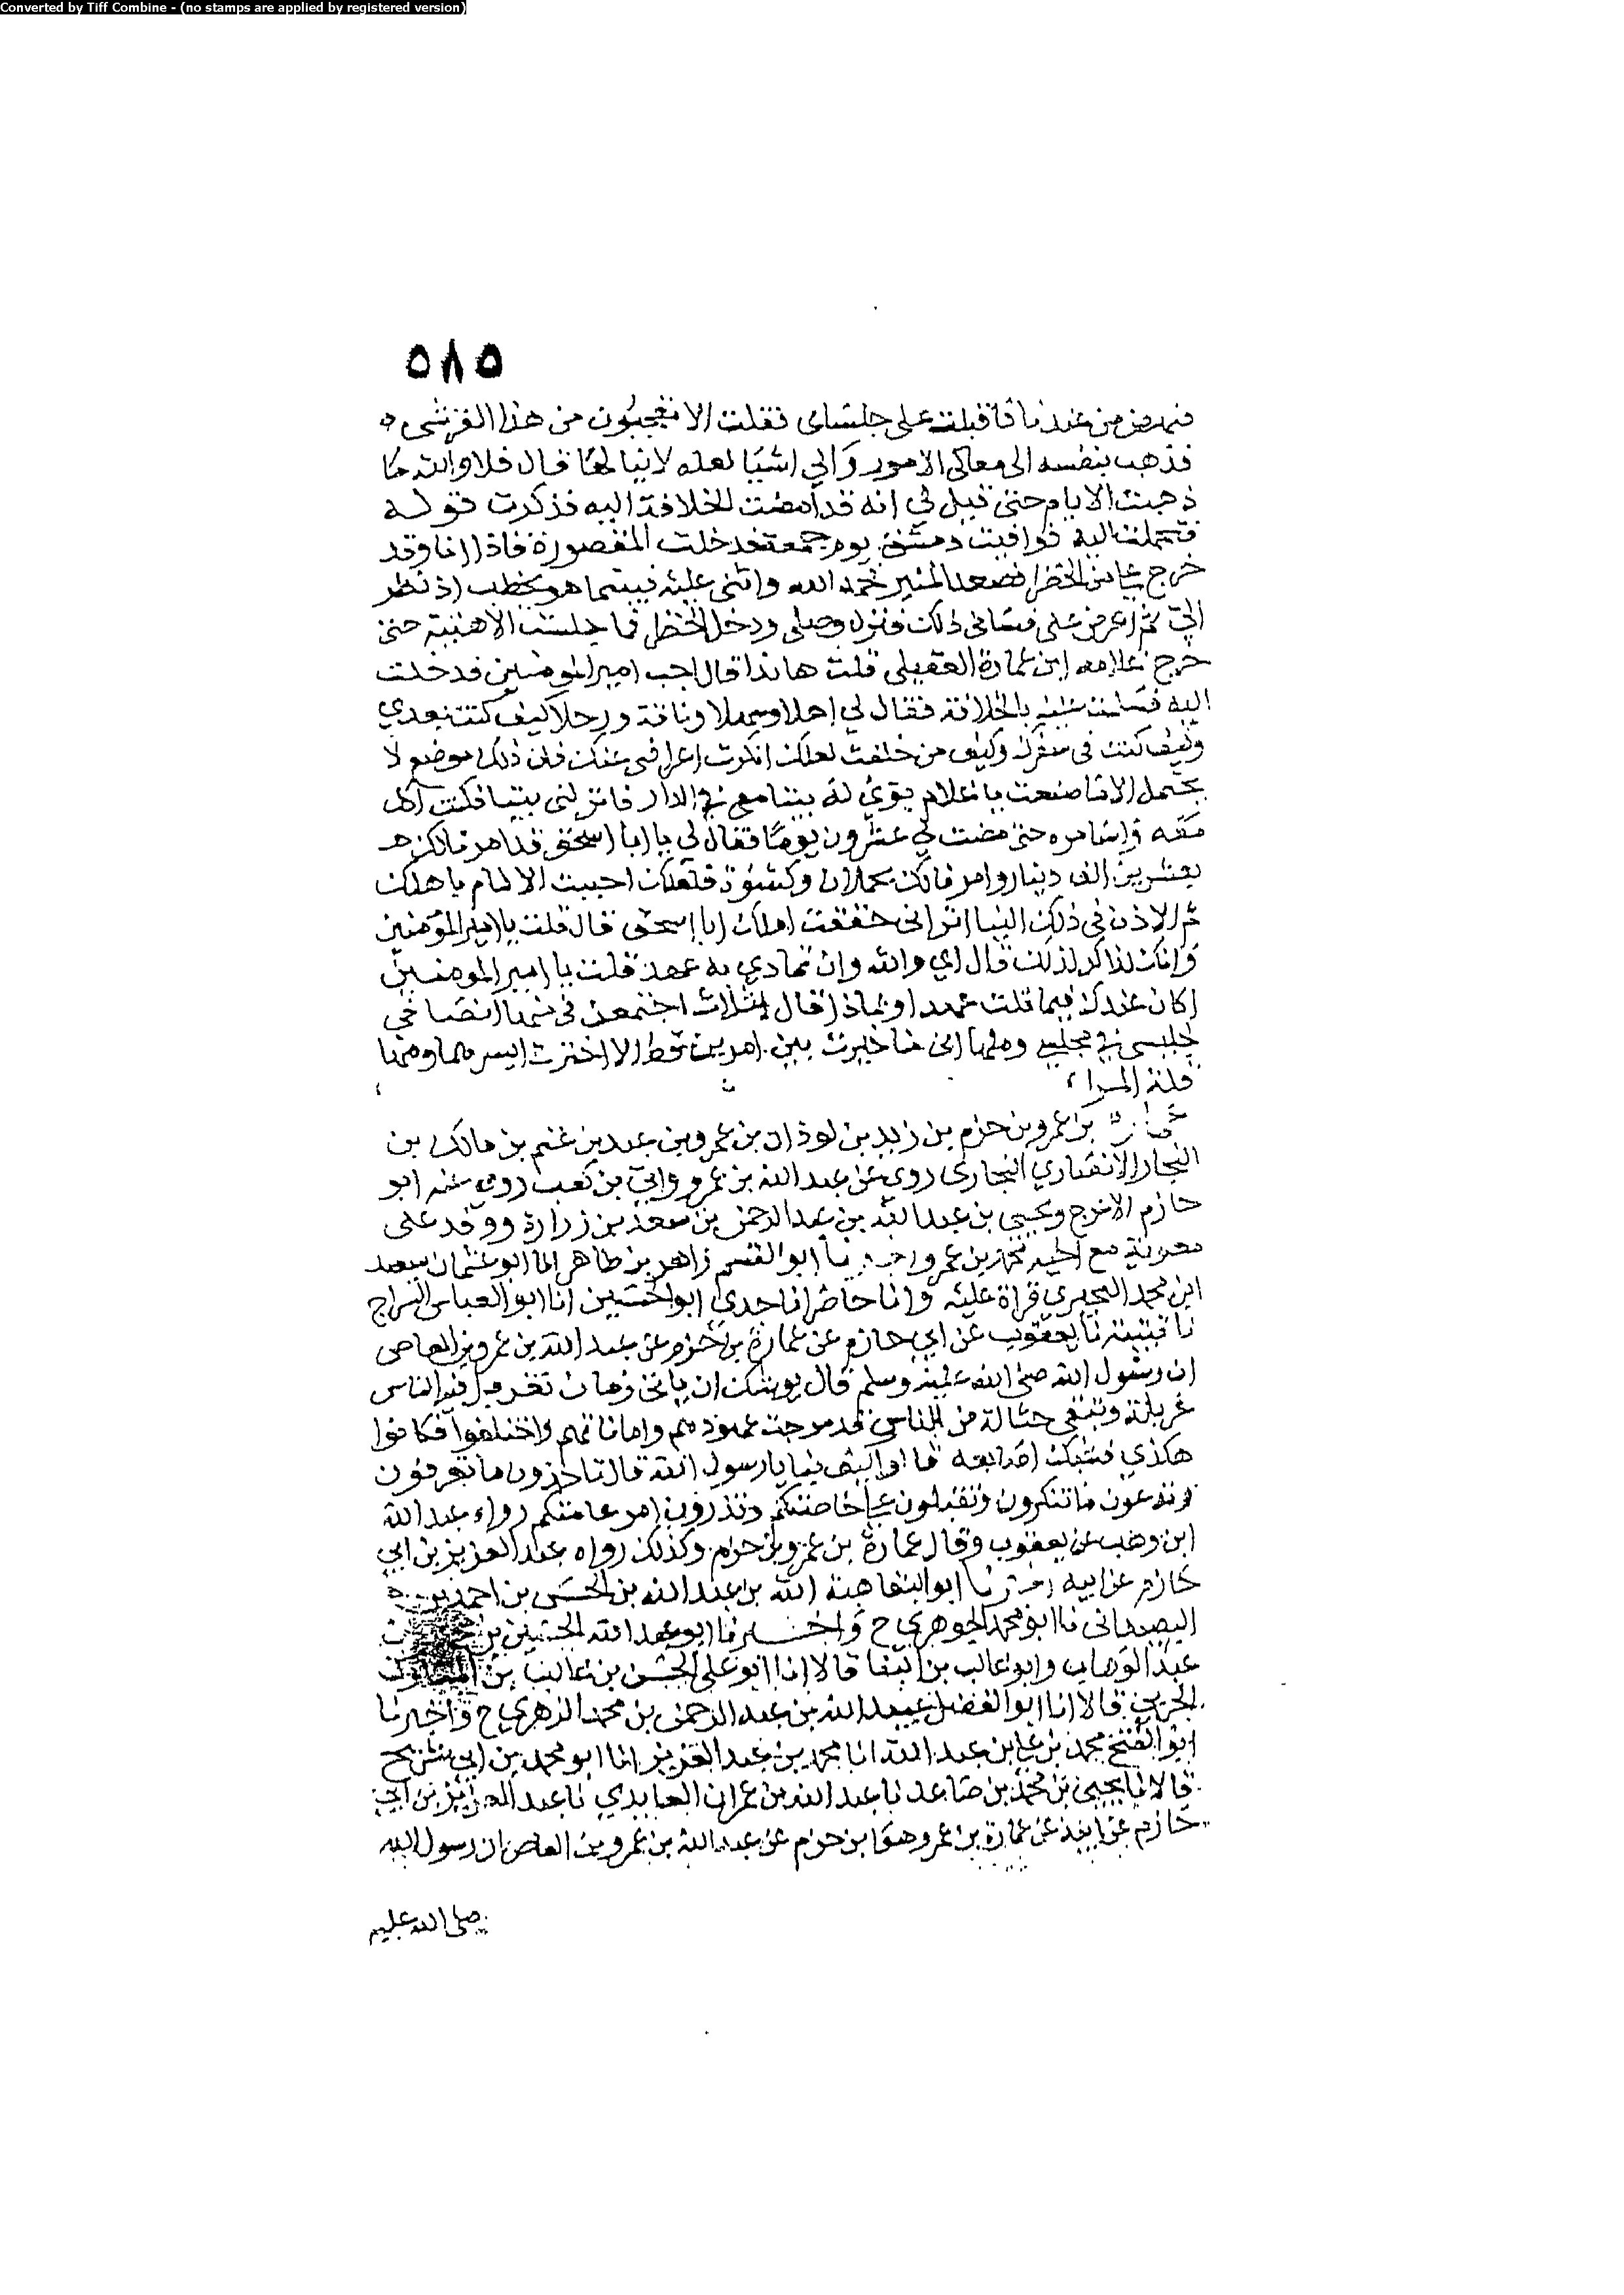 Converted by Tiff Combine - (no stamps are applied by registered version)
٥٨٥
فنهض من عندنا فاقبلت على جلسائ فقلت الا تعجبون من هذا القرشي
فذهب بنفسه الى معالي الامور والي اشيا لعله لا ينالها قال فلا والله ما
ذهبت الايام حتى قيل لي انه قد أفضت الخلافة اليه فذكرت قوله
فتحملت اليه فوافيت دمشق يوم جمعة فدخلت المقصورة فاذا انا وقد
خرج علي من الخضرا فصعد المنبر فحمد الله واثنى عليه فبينما هو يخطب اذ نظر
الي ثم اعرض على فساني ذلك فنزل وصلى ودخل الخضرا فما جلست الا هنيهة حتى
خرج غلامه ابن عمارة العقيلي قلت هانذا قال اجب امير المومنين فدخلت
اليه فسلمت عليه بالخلافة فقال لي اهلا وسهلا وناقة ورحلا كيف كنت بعدي
وكيف كنت في سفرك وكيف من خلفت لعلك انكرت اعراضي عنك فان ذلك موضع لا
يحتمل الا ما صنعت يا غلام بوئ له بيتا معي في الدار فانزلني بيتا فكنت آكل
معه واسامره حتى مضت لي عشرون يوما فقال لي يا ابا اسحق قد امرنا لك
بعشرين الف دينار وامرنا لك بحملان وكسوة فلعلك احببت الالمام باهلك
ثم الاذن في ذلك الينا اتراني حققت املك ابا اسحق قال قلت يا امير المؤمنين
وانك لذاكر لذلك قال اي والله وان تمادى به عهد قلت يا امير المومنين
اكان عندك فيما قلت عهد او بماذا قال بثلاث اجتمعن في منها انصافي
لجليسي في مجلسي ومنها اني ما خيرت بين امرين قط الا اخترت ايسرهما ومنها
قلة المرا
عمارة بن عمرو بن حزم بن زيد بن لوذان بن عمرو بن عبد بن غنم بن مالك بن
النجار الانصاري النجاري روى عن عبد الله بن عمرو وابي بن كعب روى عنه ابو
حازم الاعرج ويحيى بن عبد الله بن عبد الرحمن بن سعد بن زرارة ووفد على
معوية مع اخيه محمد بن عمرو اخبرنا ابو القسم زاهر بن طاهر انا ابو عثمان سعيد
ابن محمد البحيري قراة عليه وانا حاضر انا جدي ابو الحسين انا ابو العباس السراج
نا قتيبة نا يعقوب عن ابي حازم عن عمارة بن حزم عن عبد الله بن عمرو بن العاصي
ان رسول الله صلى الله عليه وسلم قال يوشك ان ياتي زمان تغربل فيه الناس
غربلة وتبقى حثالة من الناس قد مرجت عهودهم واماناتهم واختلفوا فكانوا
هكذي فشبك اصابعه قالوا كيف بنا يا رسول الله قال تاخذون ما تعرفون
وتدعون ما تنكرون وتقبلون على خاصتكم وتذرون امر عامتكم رواه عبد الله
ابن وهب عن يعقوب وقال عمارة بن عمرو بن حزم وكذلك رواه عبد العزيز بن ابي
حازم عن ابيه اخبرنا ابو البقا هبة الله بن عبد الله بن الحسن بن احمد بن
البصيداني نا ابو محمد الجوهري ح واخبرنا ابو عبد الله الحسين بن
عبد الوهاب وابو غالب بن البنا قالا انا ابو علي الحسن بن غالب بن المبارك
الحربي قالا انا ابو الفضل عبيد الله بن عبد الرحمن بن محمد الزهري ح واخبرنا
ابو الفتح محمد بن علي بن عبد الله انا محمد بن عبد العزيز انا ابو محمد بن ابي شريح
قالا نا يحيى بن محمد بن صاعد نا عبد الله بن عمران العابدي نا عبد العزيز بن ابي
حازم عن ابيه عن عمارة بن عمرو هو ابن حزم عن عبد الله بن عمرو بن العاص ان رسول الله
صلى الله عليه